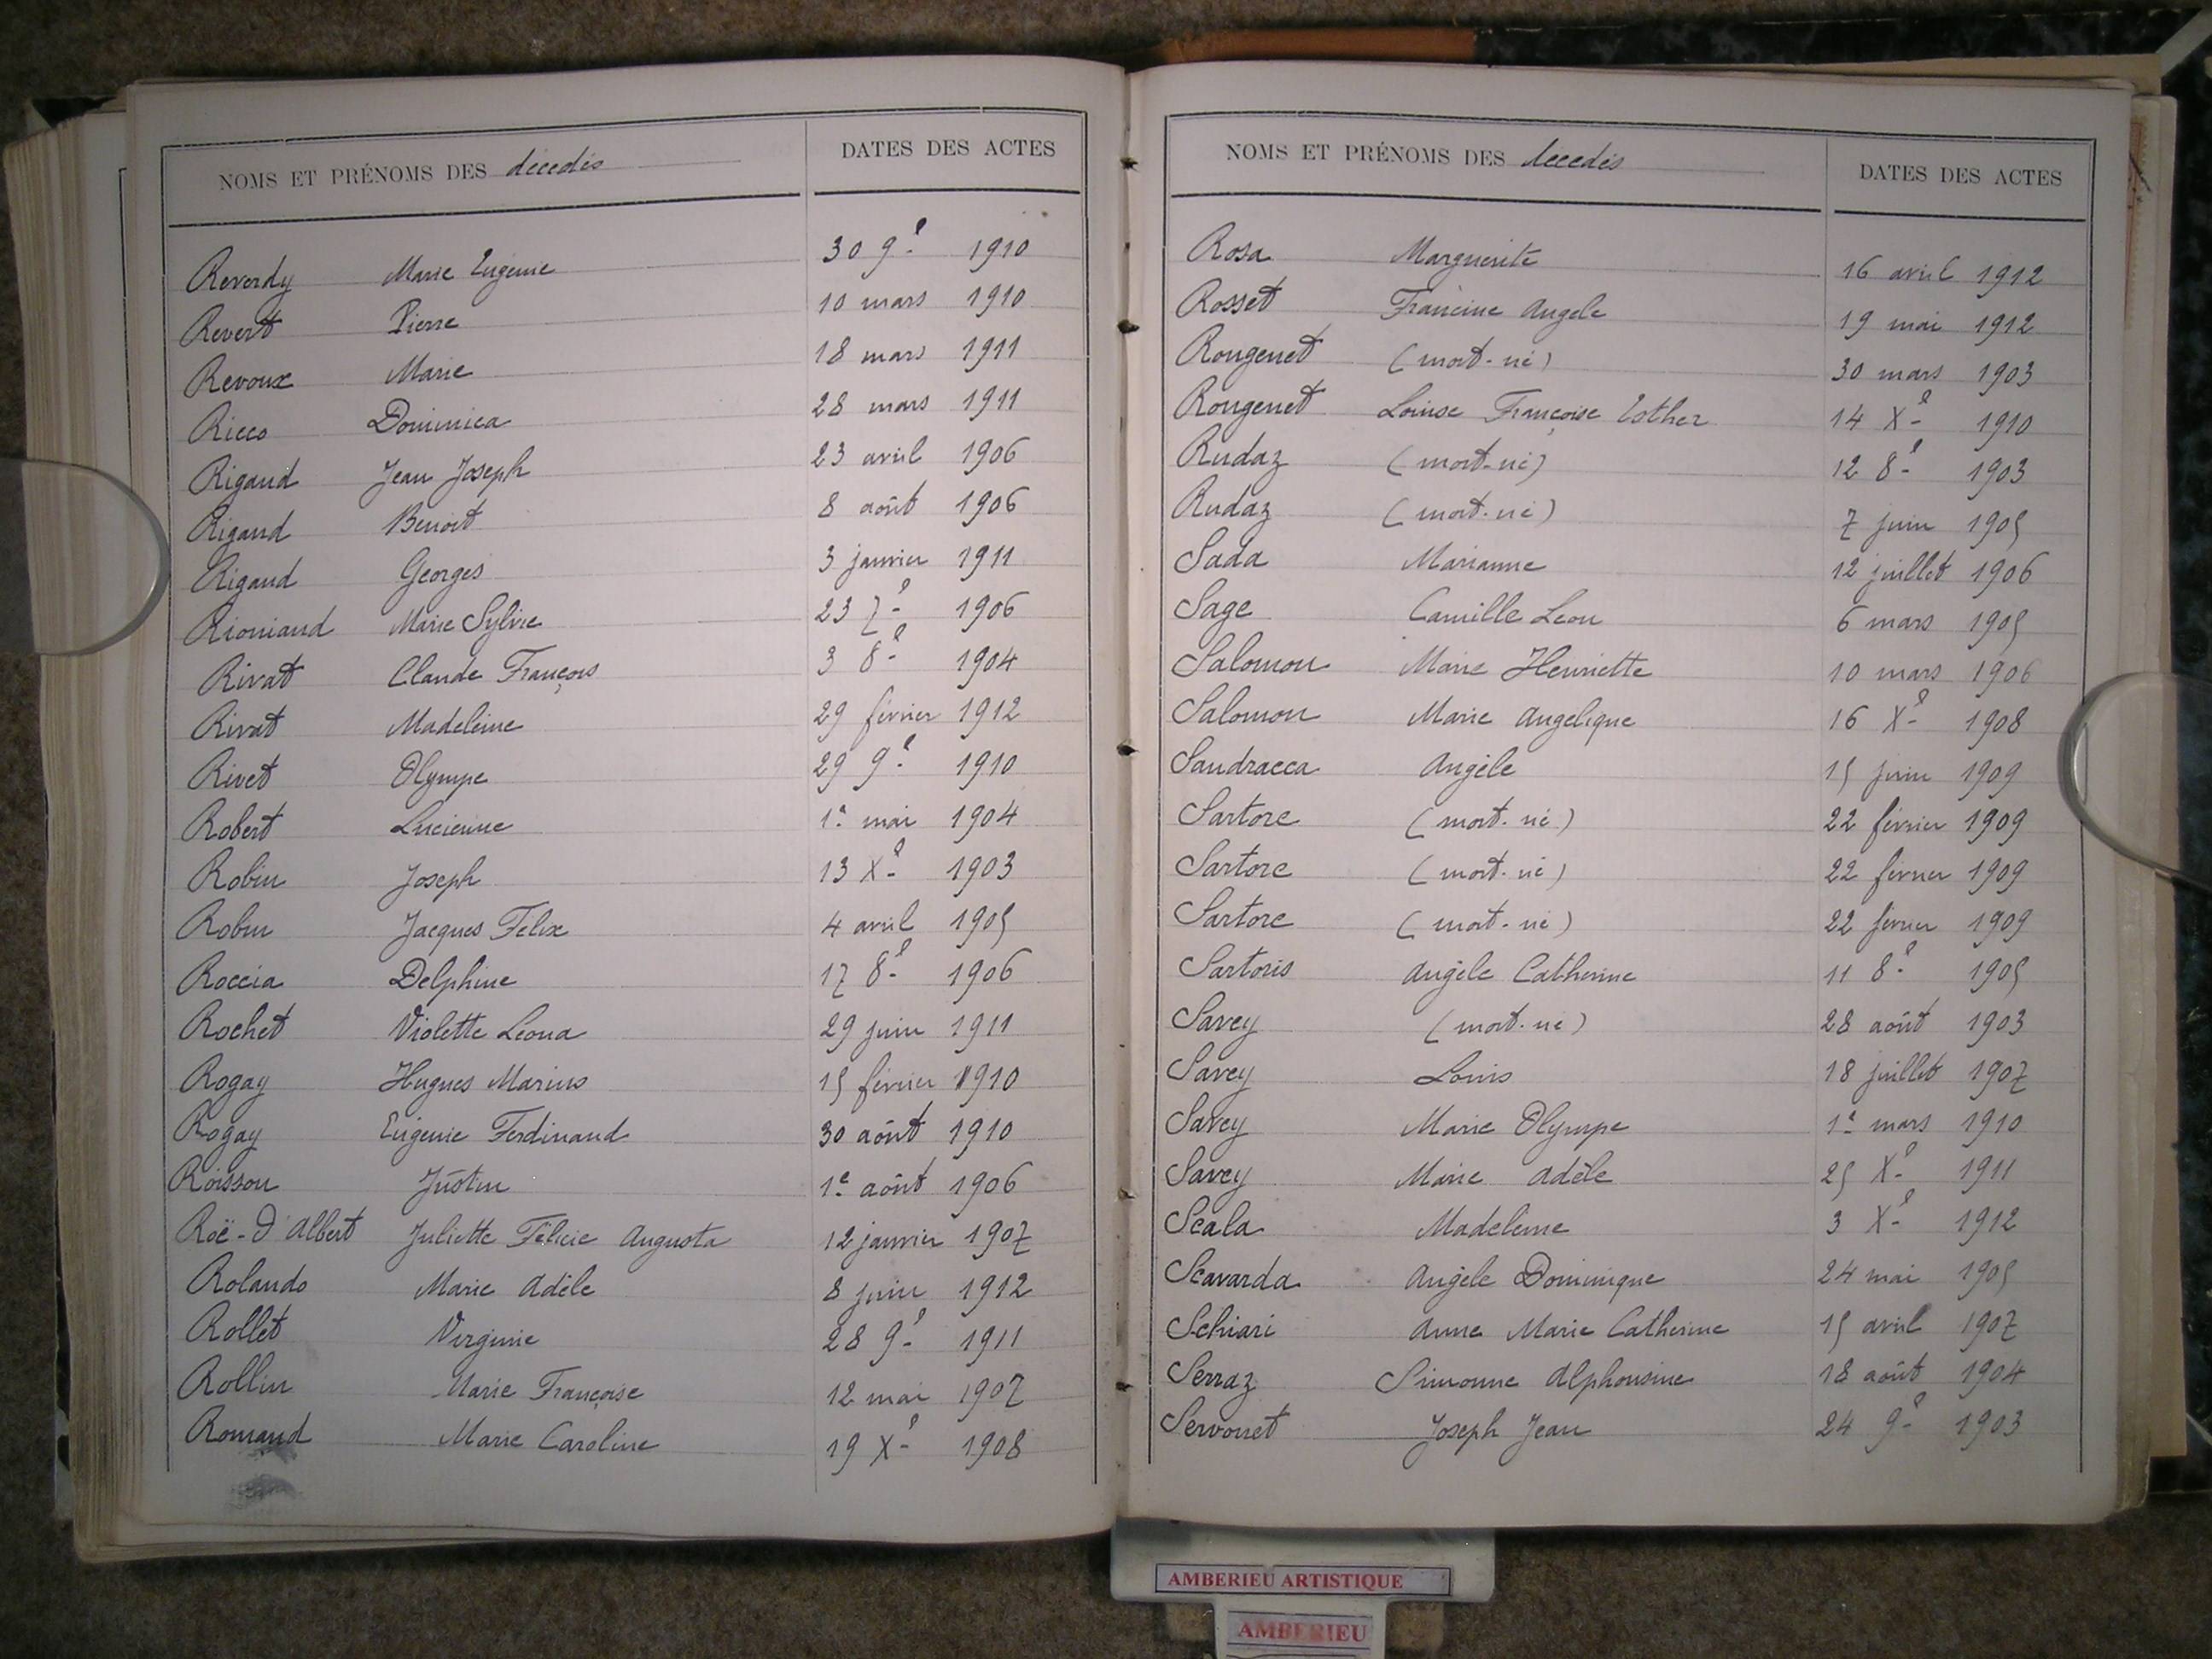 NOMS ET PRÉNOMS DES décedés DATES DES ACTES
Reverdy Marie Eugénie 30 9e 1910
Revert Pierre 10 mars 1910
Revoux Marie 18 mars 1911
Ricco Dominica 28 mars 1911
Rigaud Jean Joseph 23 avril 1906
Rigaud Benoit 8 août 1906
Rigaud Georges 3 janvier 1911
Rioniand Marie Sylvie 23 7e 1906
Rivat Claude François 3 8e 1904
Rivat Madeleine 29 février 1912
Rivet Olympe 29 9e 1910
Robert Lucienne 1e mai 1904
Robin Joseph 13 Xe 1903
Robin Jacques Felix 4 avril 1905
Roccia Delphine 17 8e 1906
Rochet Violette Leona 29 juin 1911
Rogay Hugues Marius 15 février 1910
Rogay Eugenie Ferdinand 30 août 1910
Roisson Justin 1e août 1906
Roë-D'Albert Juliette Félicie Augusta 12 janvier 1907
Rolando Marie Adèle 8 juin 1912
Rollet Virginie 28 9e 1911
Rollin Marie Françoise 12 mai 1907
Romand Marie Caroline 19 Xe 1908
NOMS ET PRÉNOMS DES decedés DATES DES ACTES
Rosa Marguerite 16 avril 1912
Rosset Francine Angele 19 mai 1912
Rougenet (mort-né) 30 mars 1903
Rougenet Louise Françoise Esther 14 Xe 1910
Rudaz (mort-né) 12 8e 1903
Rudaz (mort-né) 7 juin 1905
Sada Marianne 12 juillet 1906
Sage Camille Leon 6 mars 1905
Salomon Marie Henriette 10 mars 1906
Salomon Marie Angelique 16 Xe 1908
Sandracca Angèle 15 juin 1909
Sartore (mort-né) 22 février 1909
Sartore (mort-né) 22 février 1909
Sartore (mort-né) 22 février 1909
Sartoris Angèle Catherine 11 8e 1905
Savey (mort-né) 28 août 1903
Savey Louis 18 juillet 1907
Savey Marie Olympe 1e mars 1910
Savey Marie Adèle 25 Xe 1911
Scala Madeleine 3 Xe 1912
Scavarda Angèle Dominique 24 mai 1905
Schiari Anne Marie Catherine 15 avril 1907
Serraz Simonne Alphonsine 18 août 1904
Servonet Joseph Jean 24 9e 1903
AMBERIEU ARTISTIQUE
AMBERIEU